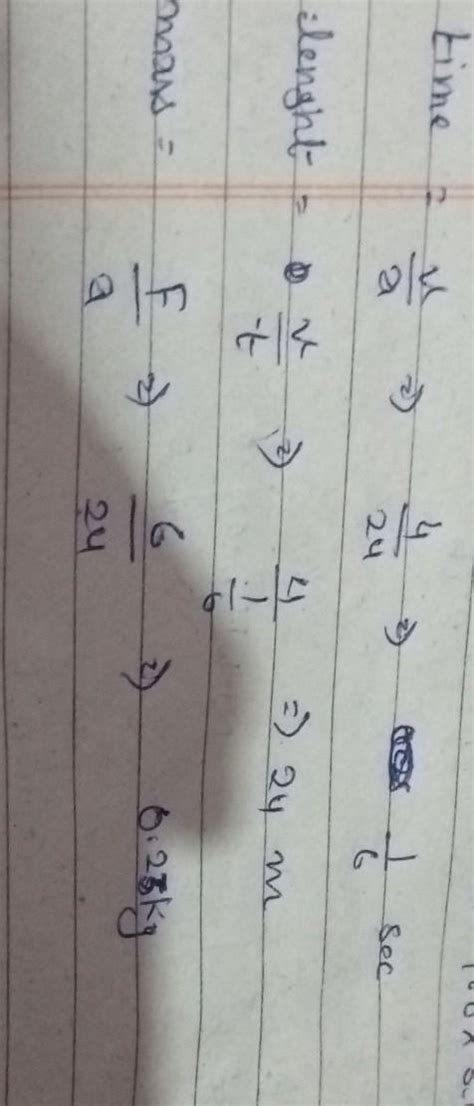 time = v/a => 4/24 => 1/6 sec
lenght = v/t => 4/1/6 => 24 m
mass = F/a => 6/24 => 0.25kg